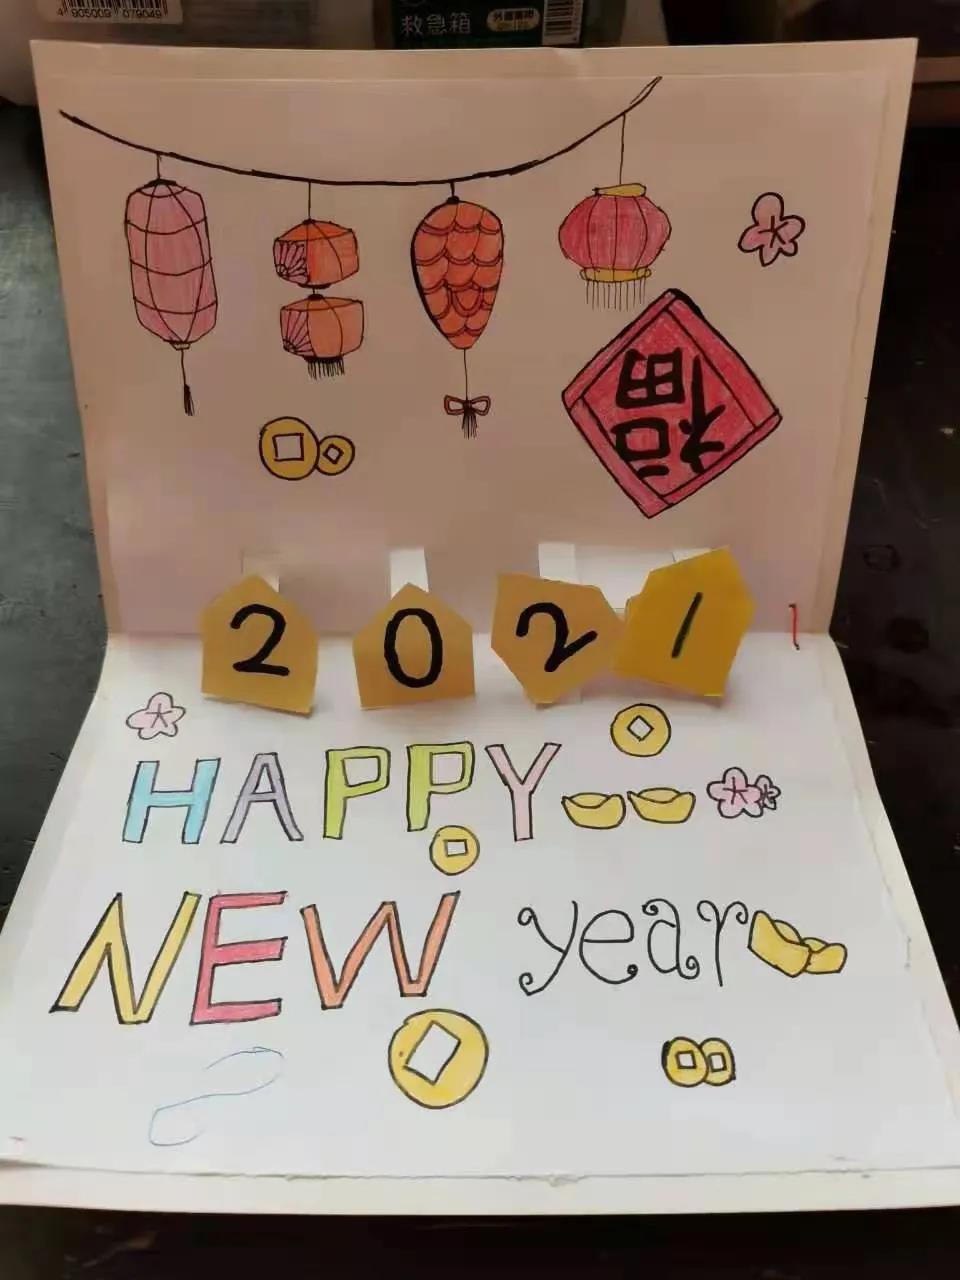 4 905009 079049
救急箱
福
2021
HAPPY
NEW year